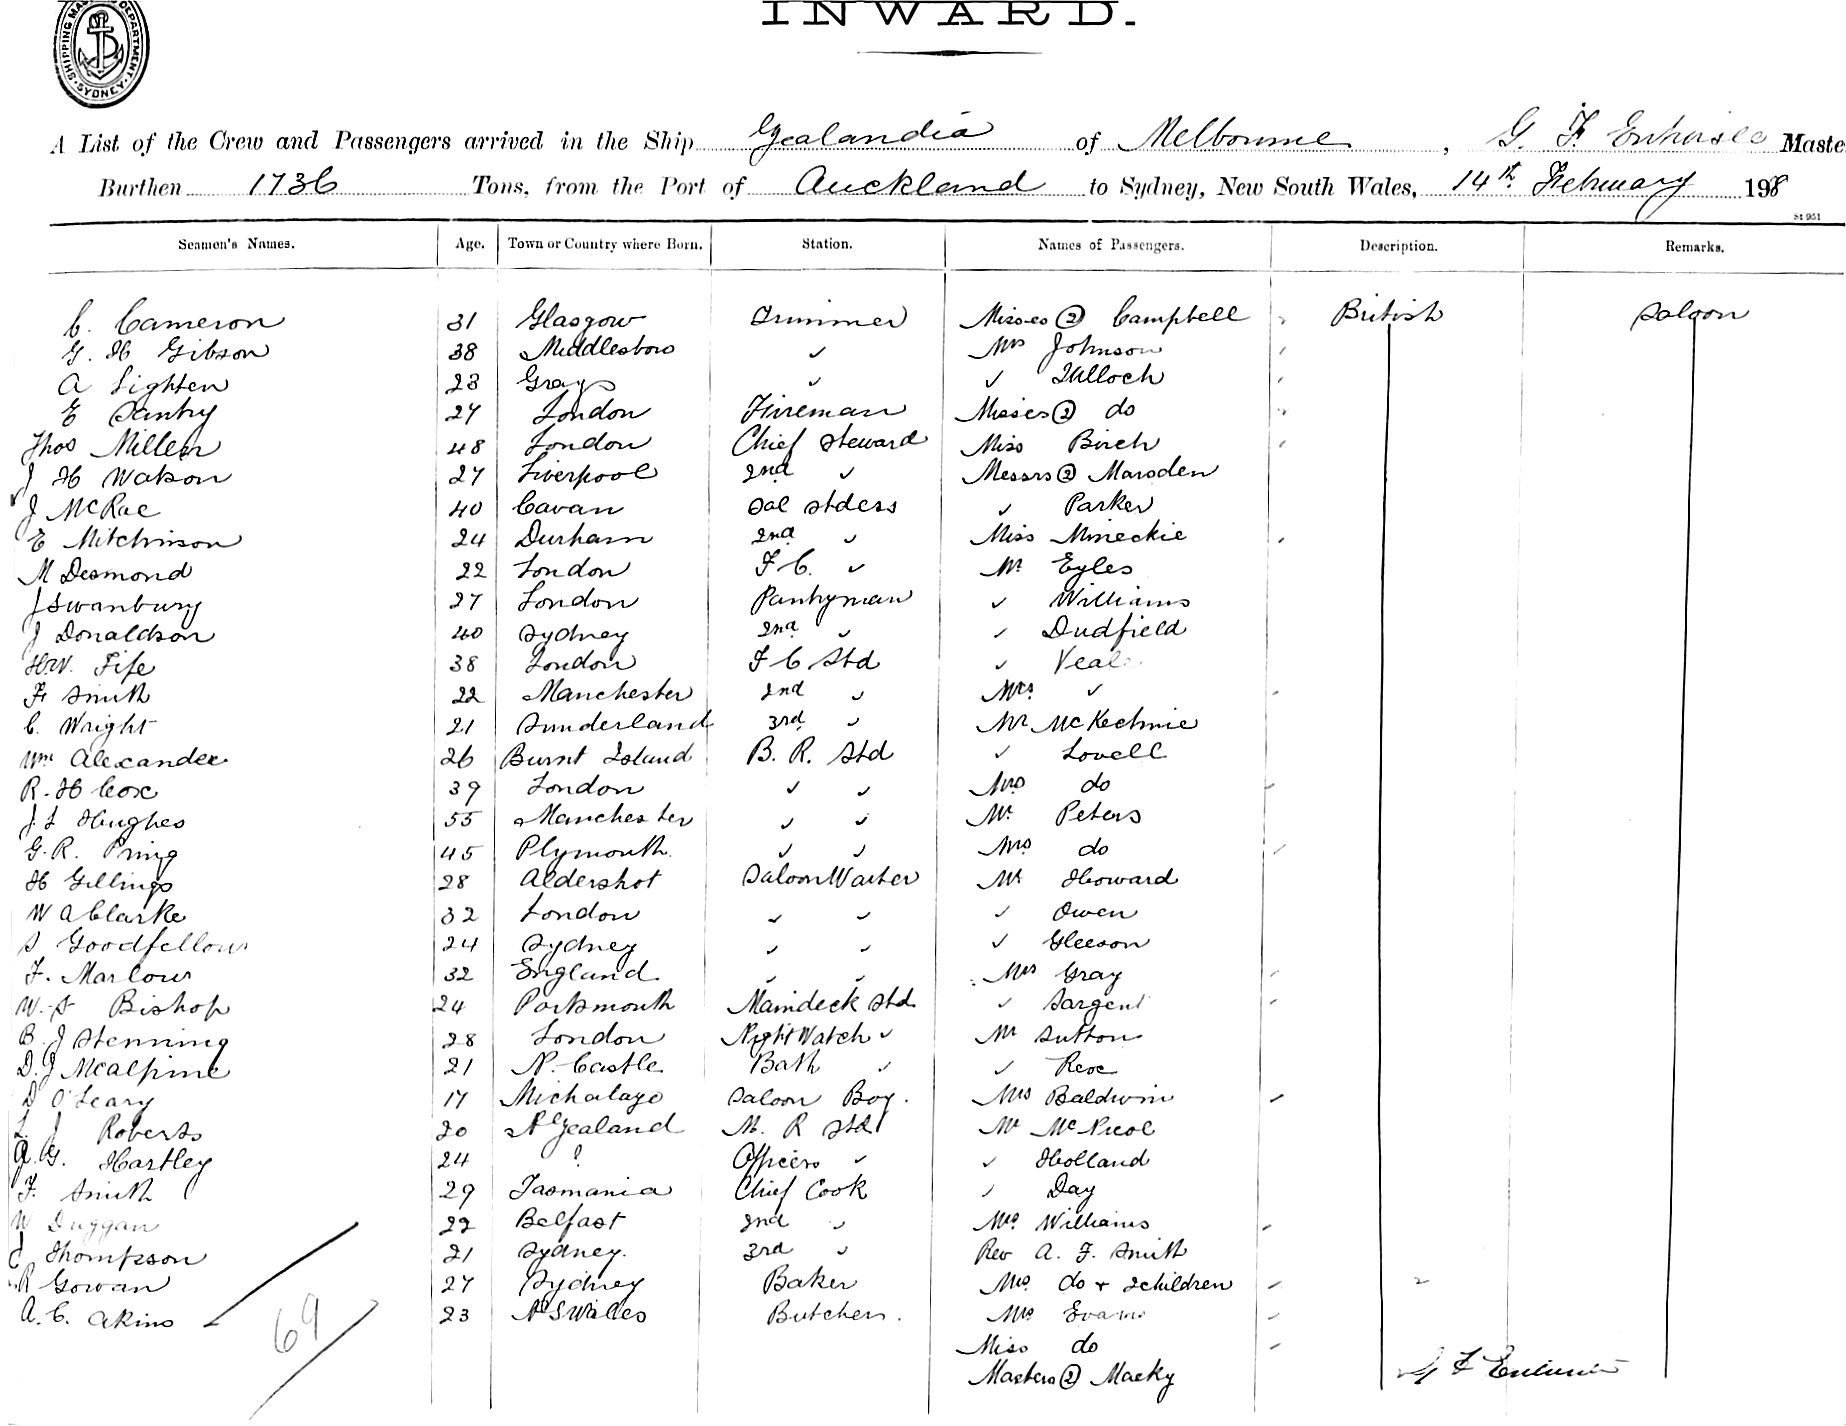 INWARD.
SHIPPING MA DEPARTMENT SYDNEY
A List of the Crew and Passengers arrived in the Ship Zealandia of Melbourne, G. F. Maste
Burthen 1736 Tons, from the Port of Auckland to Sydney, New South Wales, 14th February 198
St 951
Seamen's Names. Age. Town or Country where Born. Station. Names of Passengers. Description. Remarks.
C. Cameron 31 Glasgow Trimmer Misses (2) Campbell British Saloon
G. H Gibson 38 Middlesboro ✓ Mrs Johnson
A Lighten 23 Grays ✓ ✓ Tulloch
E Santry 27 London Fireman Misses (2) do
Thos Miller 48 London Chief Steward Miss Birch
J H Watson 27 Liverpool 2nd ✓ Messrs (2) Marsden
J McRae 40 Cavan Sal Stdess ✓ Parker
E Mitchinson 24 Durham 2nd ✓ Miss Mineckie
M Desmond 22 London F C. ✓ Mr Eyles
J Swanbury 27 London Pantryman ✓ Williams
J Donaldson 40 Sydney 2nd ✓ ✓ Dudfield
HW. Fife 38 London F C Std ✓ Veal
F Smith 22 Manchester 2nd ✓ Mrs ✓
C. Wright 21 Sunderland 3rd ✓ Mr McKechnie
Wm Alexander 26 Burnt Island B. R. Std ✓ Lovell
R. H Cox 39 London ✓ ✓ Mrs do
J. L Hughes 55 Manchester ✓ ✓ Mr Peters
G. R. Pring 45 Plymouth ✓ ✓ Mrs do
H Gillings 28 Aldershot Saloon Waiter Mr Howard
W A Clarke 32 London ✓ ✓ ✓ Owen
S Goodfellow 24 Sydney ✓ ✓ ✓ Gleeson
F. Marlow 32 England ✓ ✓ Mrs Gray
W. S Bishop 24 Portsmouth Maindeck Std ✓ Sargent
B. J Stenning 28 London Night Watch ✓ Mr Sutton
D. J McAlpine 21 N. Castle Bath ✓ ✓
D O'Leary 17 Michalago Saloon Boy. Mrs Baldwin
L J Roberts 20 N Zealand M. R Std Mr McNicol
A. G. Hartley 24 ? Officers ✓ ✓ Holland
F. Smith 29 Tasmania Chief Cook ✓ Day
W Duggan 22 Belfast 2nd ✓ Mrs Williams
C Thompson 21 Sydney. 3rd ✓ Rev A. F. Smith
R Gowan 27 Sydney Baker Mrs do + 2 children
A. C. Akins 23 N S Wales Butcher. Mrs Evans
69 Miss do
Masters (2) Macky